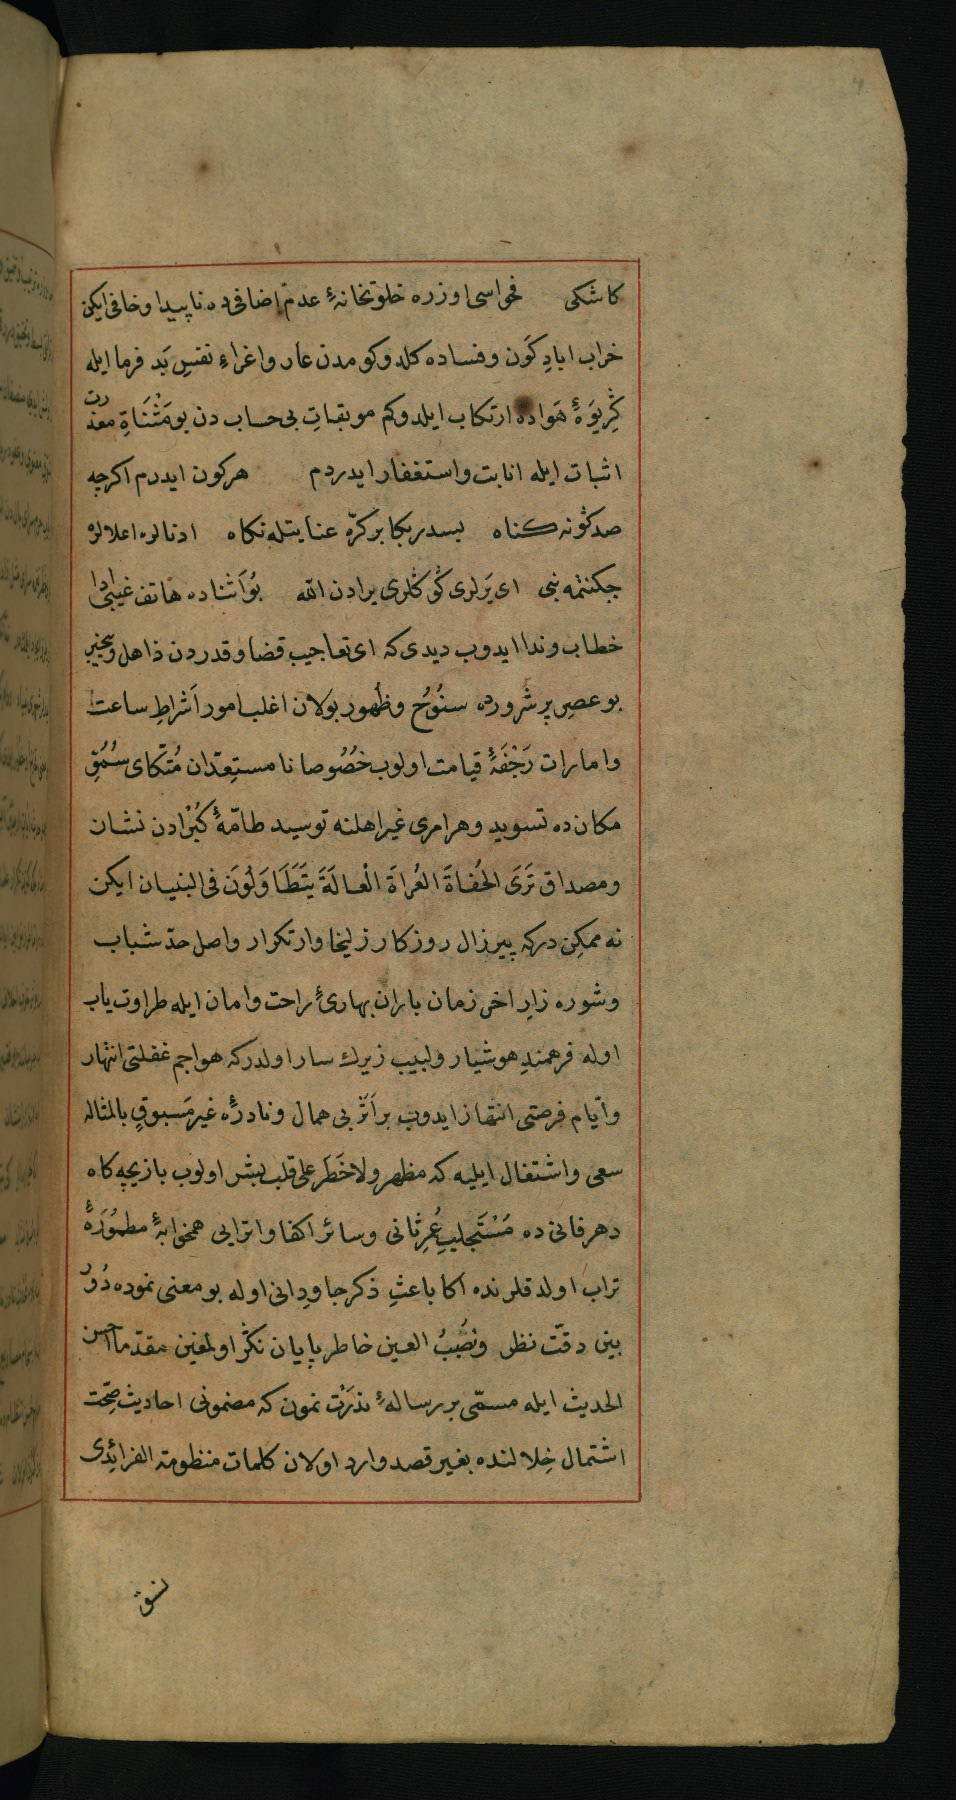 كاشكى فحواسى اوزره خلوتخانهٔ عدم اضافى ده ناپيدا وخافى ايكن
خراب ابادِ كَون وفساده كلدوكومدن عار واغراءِ نفسِ بَد فرما ايله
كَرِيوَهٔ هَواده ارتكاب ايلدوكم موبقاتِ بى حساب دن بو مَثْنَاةِ معذرت
اثبات ايله انابت واستغفار ايدردم هركون ايدرم اكرچه
صدكونه كناه بسدر بكا بركرّه عنايتله نكاه ادنالره اعلالره
چكنتمه بنى اى يَرلرى كوكلرى يرادن الله بُو اَثناده هاتف غيبى
خطاب وندا ايدوب ديدى كه اى تعاجيب قضا وقدردن ذاهل وبيخبر
بو عصرِ پر شرورده سنُوح وظُهور بولان اغلب امور اَشراطِ ساعت
وامارات رَجْفَهٔ قيامت اولوب خصُوصا نا مستعِدّان مُتّكاى سُمُوِّ
مكان ده تسويد وهر امرى غير اهلنه توسيد طامّهٔ كُبْرادن نشان
ومصداق تَرَى الحُفاةَ العُراةَ الْعالَةَ يَتَطَاوَلُونَ فى البنيان ايكن
نه ممكِن دركه پيرزال روزكار زليخا وار تكرار واصل حدّ شباب
وشوره زارِ اخر زمان باران بهارئ راحت وامان ايله طراوت ياب
اوله فرهمندِ هوشيار ولبيب زيرك سار اولدركه هواجم غفلتى انتهار
وايّام فرصتى انتهاز ايدوب بر اَثرِ بى همال ونادرهٔ غير مَسبوقٍ بالمثاله
سعى واشتغال ايليه كه مظهر ولا خَطَر على قلب بشر اولوب بازيچه كاه
دهر فانى ده مُسْتَجلِبِ عُمرِ ثانى وسائر اكفا واترابى همخوابهٔ مطمُورَهٔ
تراب اولدقلرنده اكا باعثِ ذكر جاودانى اوله بو معنى نموده دُورْ
بين دقّت نظر ونُصْبُ العين خاطر پايان نكر اولمغين مقدّما احسن
الحديث ايله مسمّى بر رسالهٔ ندرَت نمون كه مضمونى احاديث صِحّت
اشتمال خِلالنده بغير قصد وارد اولان كلمات منظومة الفرائدى
نسق